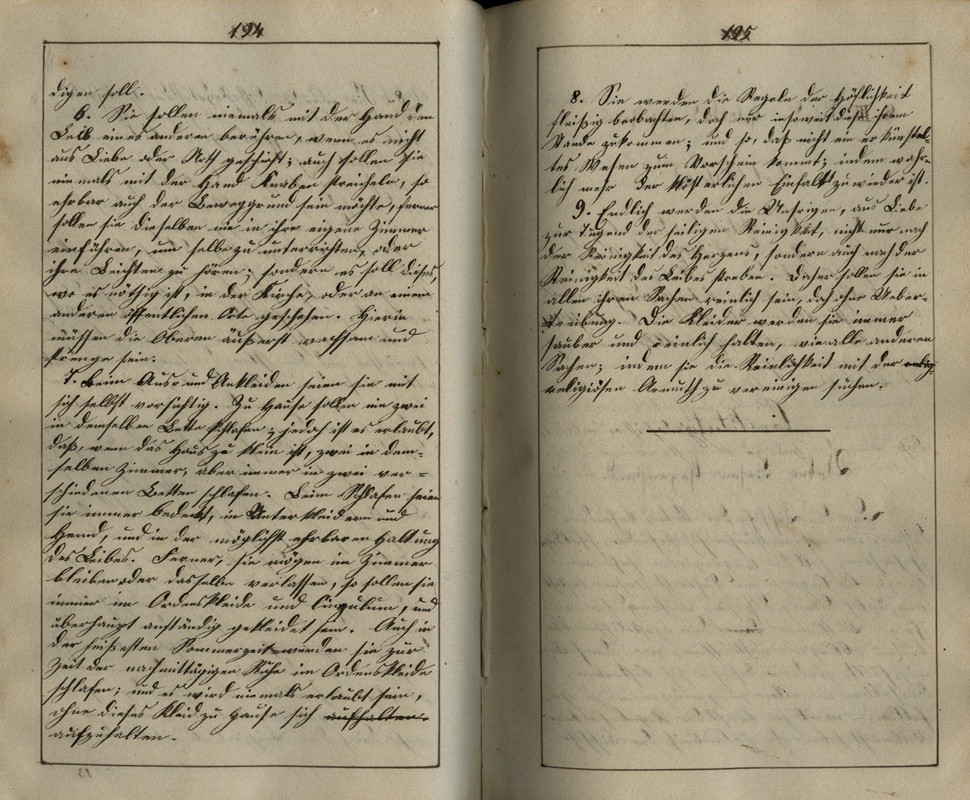 194
digen soll.
6. Sie sollen niemals mit der Hand den
Leib eines anderen berühren, wenn es nicht
aus Liebe oder Noth geschieht; auch sollen sie
niemals mit der Hand Knaben streicheln, so
ehrbar auch der Beweggrund sein möchte, ferner
sollen sie dieselben nie in ihre eigene Zimmer
einführen, um selbe zu unterrichten, oder
ihre Beichten zu hören; sondern es soll dieses,
wo es nöthig ist, in der Kirche, oder an einem
anderen öffentlichen Orte geschehen. Hierin
müssen die Oberen äußerst wachsam und
strenge sein.
7. Beim Aus- und Ankleiden seien sie mit
sich selbst vorsichtig. Zu Hause sollen nie zwei
in demselben Bette schlafen; jedoch ist es erlaubt,
daß, wenn das Haus zu klein ist, zwei in dem-
selben Zimmer, aber immer in zwei ver-
schiedenen Betten schlafen. Beim Schlafen seien
sie immer bedeckt, in Unterkleidern und
Hemd, und in der möglichst ehrbaren Haltung
des Leibes. Ferner, sie mögen im Zimmer
bleiben oder dasselbe verlassen, so sollen sie
immer im Ordenskleide und Cingulum, und
überhaupt anständig gekleidet sein. Auch in
der heißesten Sommerzeit werden sie zur
Zeit der nachmittägigen Ruhe im Ordenskleide
schlafen; und es wird niemals erlaubt sein,
ohne dieses Kleid zu Hause sich aufhalten
aufzuhalten.
195
8. Sie werden die Regeln der Höflichkeit
fleißig beobachten, doch nur insoweit diese ihrem
Stande zukommen; und so, daß nicht ein erkünstel-
tes Wesen zum Vorschein kommt; indem wahr-
lich mehr der klösterlichen Einfalt zuwieder ist.
9. Endlich werden die Unsrigen, aus Liebe
zur Tugend der heiligen Reinigkeit, nicht nur nach
der Reinigkeit des Herzens, sondern auch nach der
Reinigkeit des Leibes streben. Daher sollen sie in
allen ihren Sachen reinlich sein, doch ohne Ueber-
treibung. Die Kleider werden sie immer
sauber und reinlich halten, wie alle anderen
Sachen; indem sie die Reinlichkeit mit der
religiösen Armuth zu vereinigen suchen.